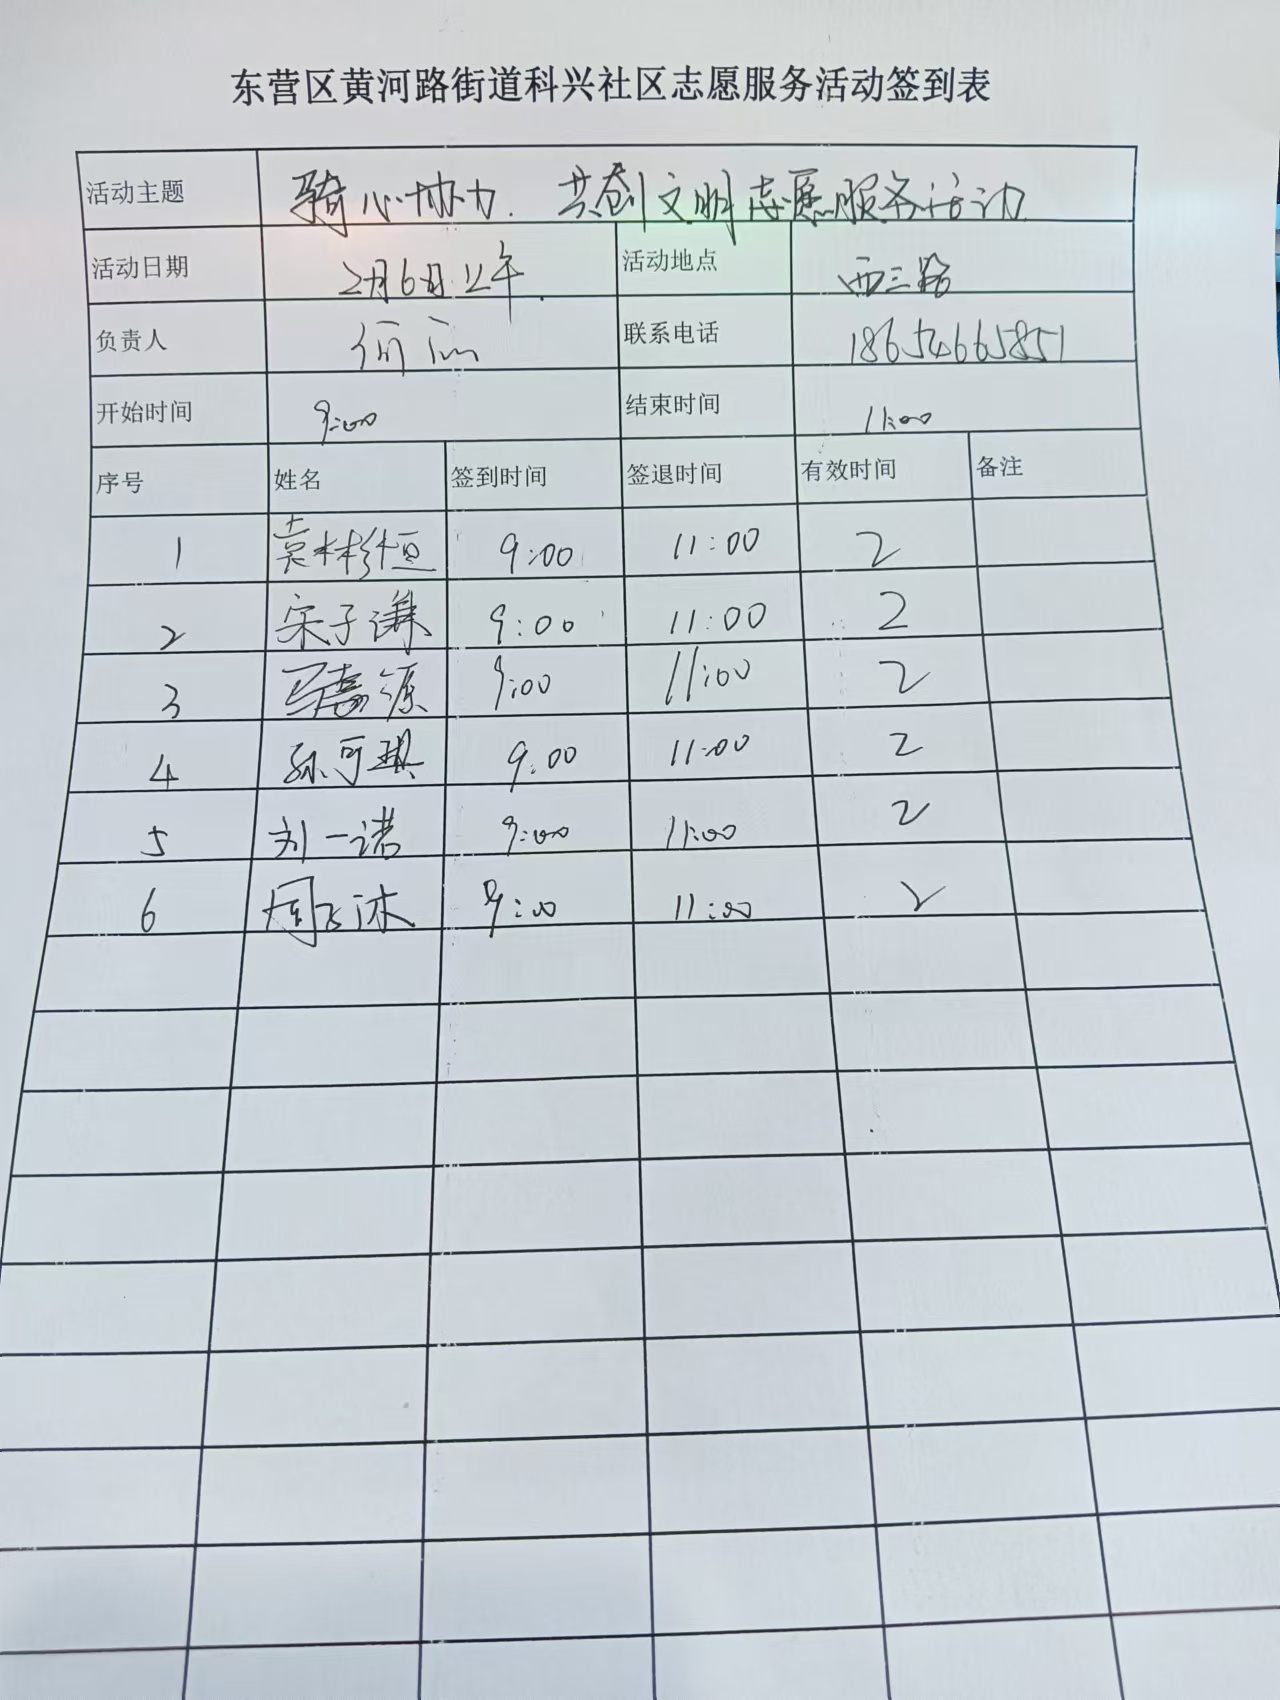 东营区黄河路街道科兴社区志愿服务活动签到表
活动主题 骑心协力. 共创文明志愿服务活动
活动日期 2月6日上午. 活动地点 西三路
负责人 联系电话 18654665851
开始时间 9:00 结束时间 11:00
序号 姓名 签到时间 签退时间 有效时间 备注
1 袁彬恒 9:00 11:00 2
2 宋子谦 9:00 11:00 2
3 马嘉源 9:00 11:00 2
4 孙可琪 9:00 11:00 2
5 刘一诺 9:00 11:00 2
6 周飞沐 9:00 11:00 2